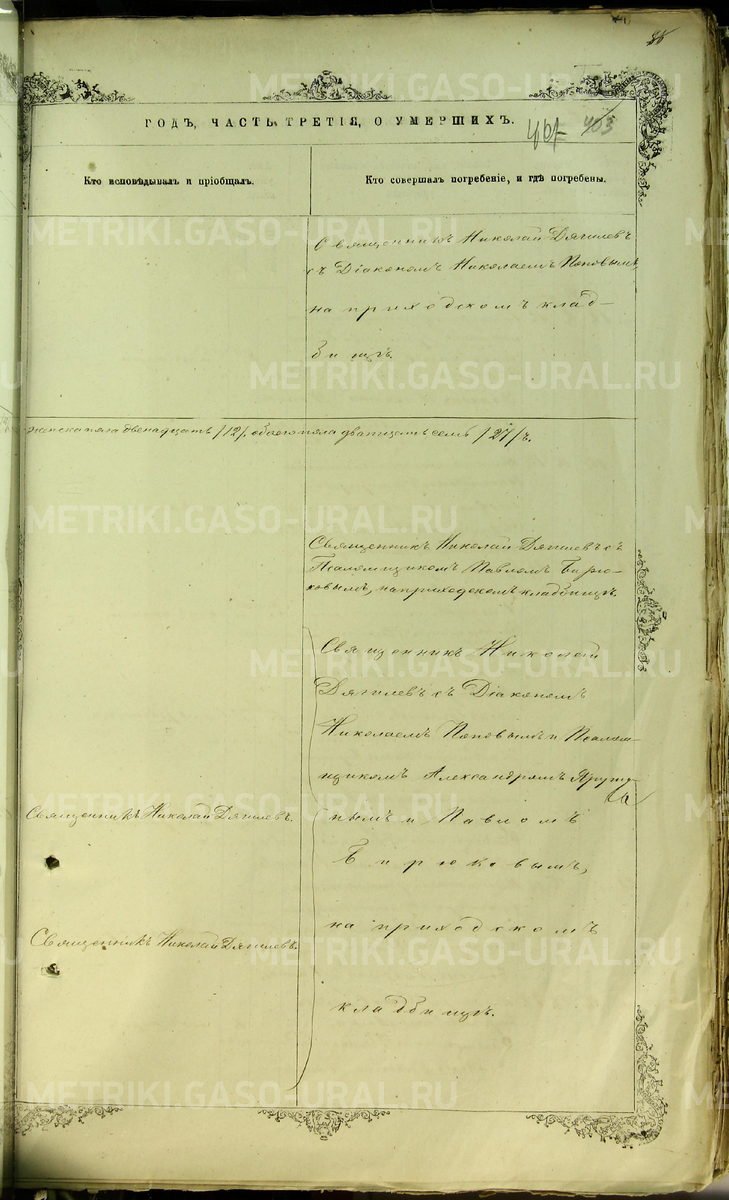 METRIKI.GASO-URAL.RU
ГОДЪ, ЧАСТЬ ТРЕТІЯ, О УМЕРШИХЪ.
403
Кто исповѣдывал и пріобщал.
Кто совершал погребеніе, и гдѣ погребены.
Священникъ Николай Дягилевъ
съ Діакономъ Николаемъ Поповымъ,
на приходскомъ клад-
бищѣ.
женска пола двенадцать /12/, обоего пола двадцать семь /27/ъ.
Священникъ Николай Дягилевъ съ
Псаломщикомъ Павломъ Бирю-
ковымъ, на приходскомъ кладбищѣ
Священникъ Николай
Дягилевъ съ Діакономъ
Николаемъ Поповымъ и Псалом-
щикомъ Александромъ
нымъ и Павломъ
Бирюковымъ,
на приходскомъ
кладбищѣ.
Священникъ Николай Дягилевъ.
Священникъ Николай Дягилевъ.